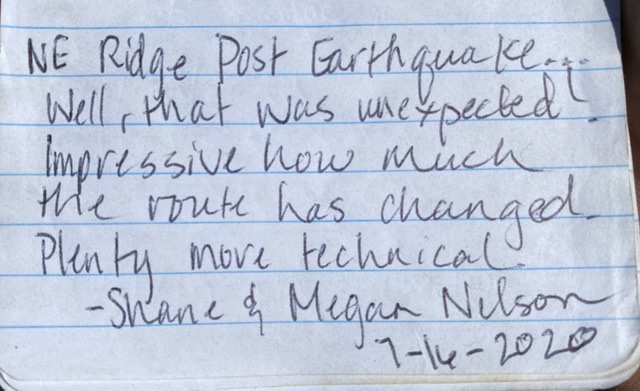 NE Ridge Post Earthquake...
Well, that was unexpected!
Impressive how much
the route has changed.
Plenty more technical.
-Shane & Megan Nelson
7-16-2020